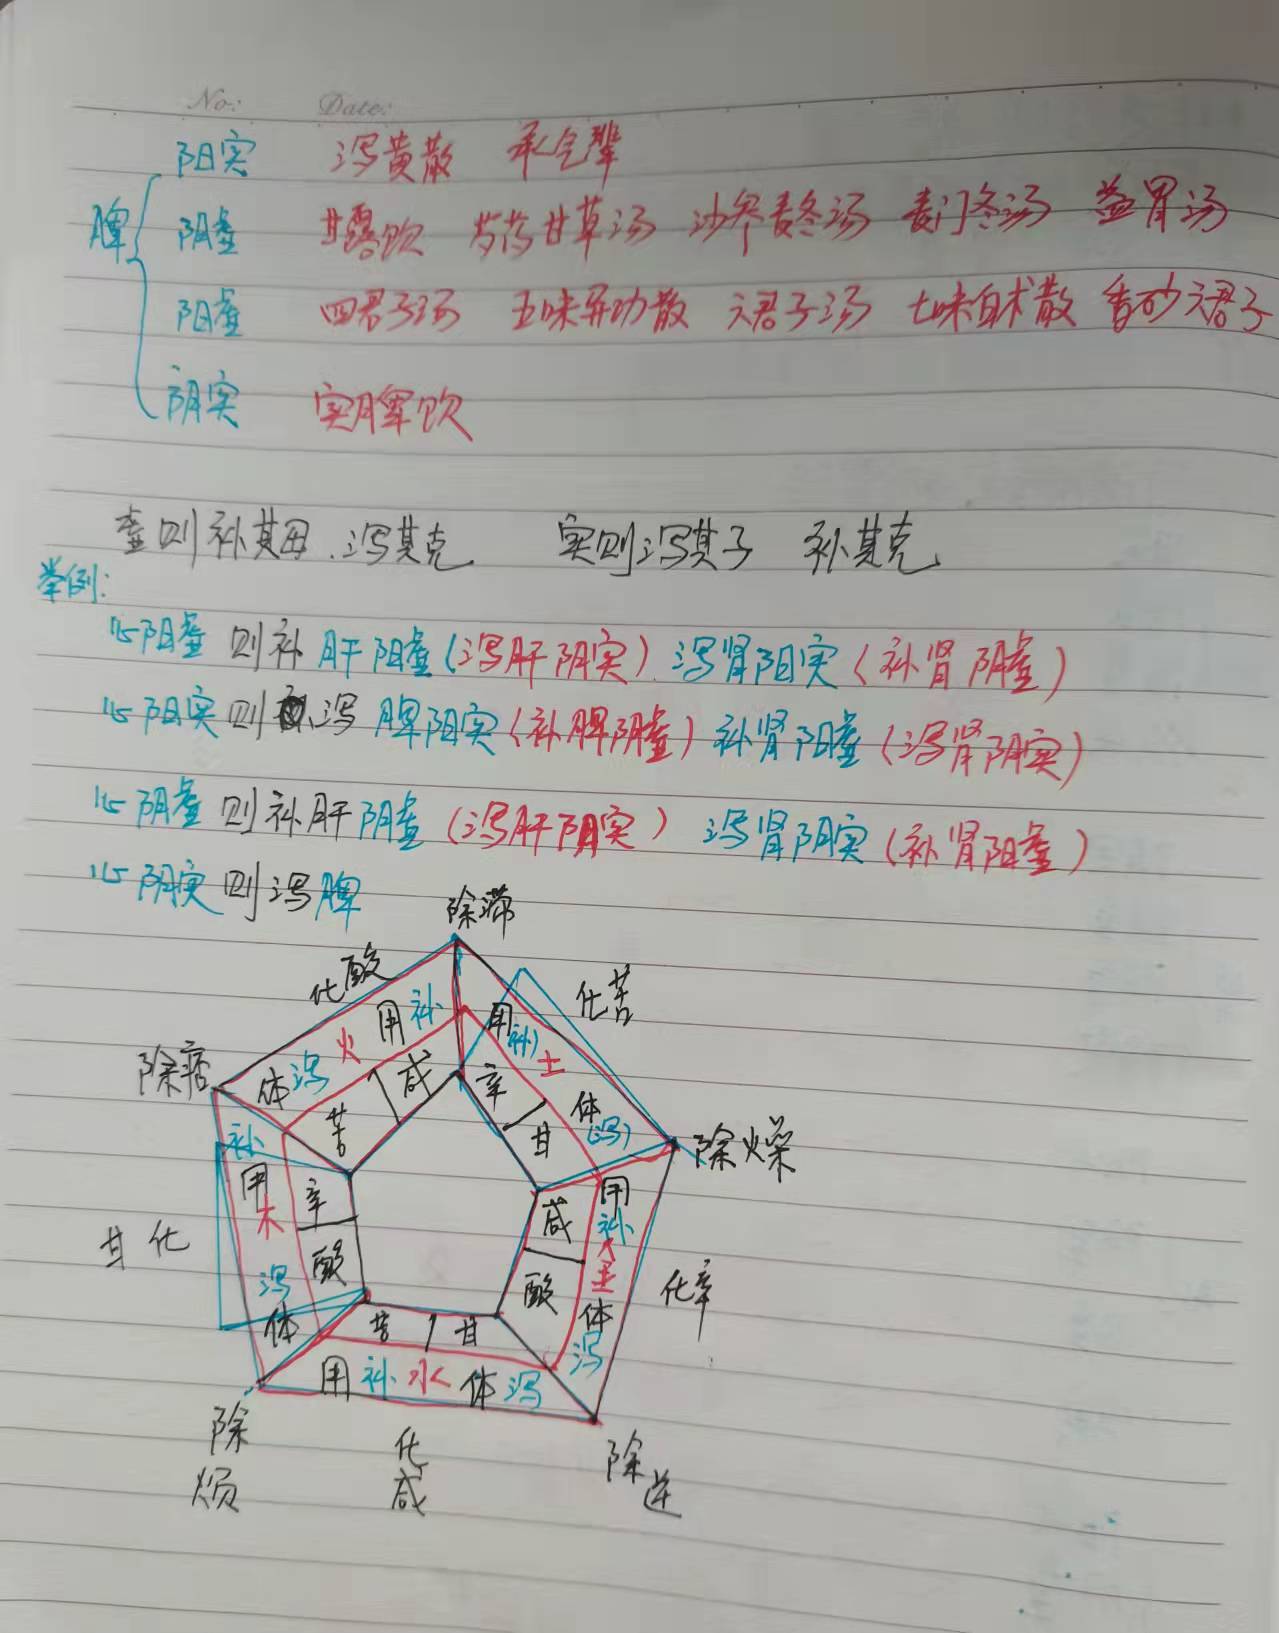 No: Date:
阳实 泻黄散 承气辈
脾 阴虚 甘露饮 芍药甘草汤 沙参麦冬汤 麦门冬汤 益胃汤
阳虚 四君子汤 五味异功散 六君子汤 七味白术散 香砂六君子
阴实 实脾饮
虚则补其母.泻其克 实则泻其子 补其克
举例:
心阳虚则补肝阳虚(泻肝阴实).泻肾阳实(补肾阴虚)
心阳实则泻脾阳实(补脾阴虚)补肾阳虚(泻肾阴实)
心阴虚则补肝阴虚(泻肝阳实) 泻肾阴实(补肾阳虚)
心阴实则泻脾
除滞
化酸 化苦
体泻火用补 用补土体(泻)
除痞 苦 咸 辛 甘 除燥
补用木泻体 辛 酸 咸 酸 用补金体泻
甘化 化辛
苦 甘
用补水体泻
除烦 化咸 除逆